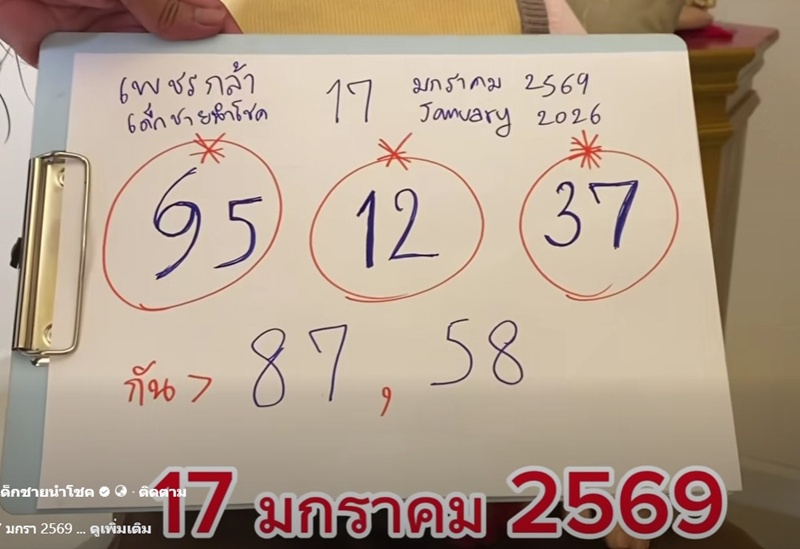 เพชรกล้า 17 มกราคม 2569
เด็กชายนำโชค January 2026
95 12 37
กัน > 87 , 58
เด็กชายนำโชค · ติดตาม
17 มกราคม 2569
มกรา 2569 ... ดูเพิ่มเติม